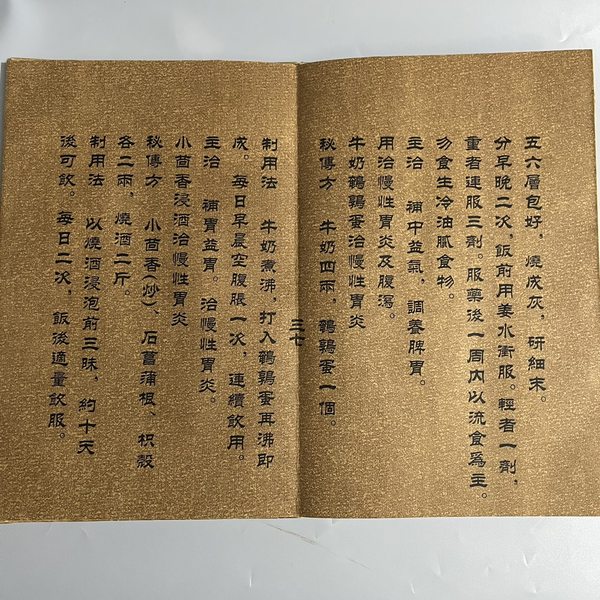 五六層包好，燒成灰，研細末。
分早晚二次，飯前用姜水衝服。輕者一劑，
重者連服三劑。服藥後一周内以流食爲主。
勿食生冷油膩食物。
主治　補中益氣，調養脾胃。
用治慢性胃炎及腹瀉。
牛奶鵪鶉蛋治慢性胃炎
秘傳方　牛奶四兩，鵪鶉蛋一個。
三七
制用法　牛奶煮沸，打入鵪鶉蛋再沸即
成。每日早晨空腹服一次，連續飲用。
主治　補胃益胃。治慢性胃炎。
小茴香浸酒治慢性胃炎
秘傳方　小茴香(炒)、石菖蒲根、枳殼
各二兩，燒酒二斤。
制用法　以燒酒浸泡前三味，約十天
後可飲。每日二次，飯後適量飲服。